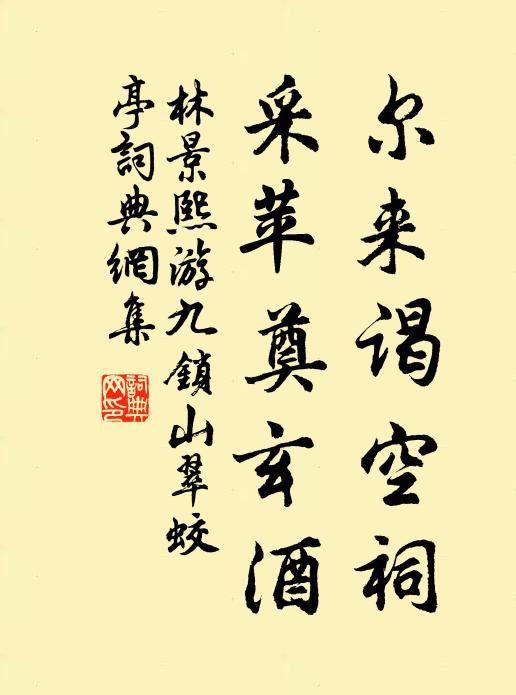 尔来谒空祠
采苹奠玄酒
林景熙游九鎖山翠蛟
亭詞典網集
詞典
网印